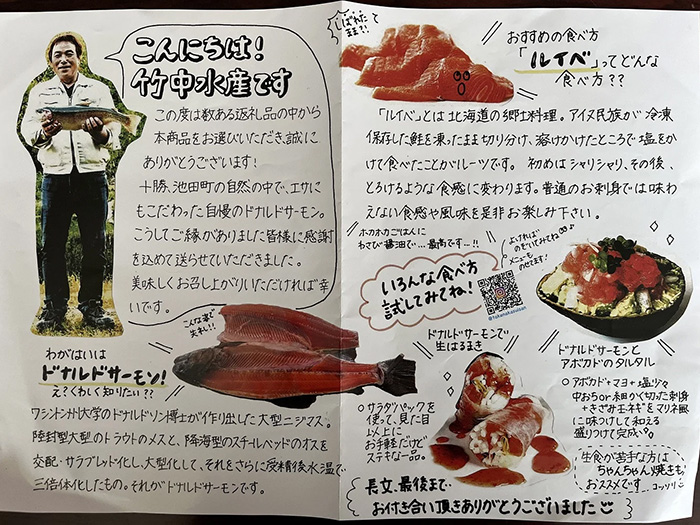 こんにちは！
竹中水産です
この度は数ある返礼品の中から
本商品をお選びいただき、誠に
ありがとうございます！
十勝、池田町の自然の中で、エサに
もこだわった自慢のドナルドサーモン。
こうしてご縁がありました皆様に感謝
を込めて送らせていただきました。
美味しくお召し上がりいただければ幸
いです。
こんな姿で
失礼!!
わがはいは
ドナルドサーモン！
え？くわしく知りたい？？
ワシントン州大学のドナルドソン博士が作り出した大型ニジマス。
陸封型大型のトラウトのメスと、降海型のスチールヘッドのオスを
交配・サラブレッド化し、大型化して、それをさらに受精後水温で
三倍体化したもの。それがドナルドサーモンです。
おすすめの食べ方
「ルイベ」ってどんな
食べ方？？
「ルイベ」とは北海道の郷土料理。アイヌ民族が冷凍
保存した鮭を凍ったまま切り分け、溶けかけたところで塩をか
けて食べたことがルーツです。初めはシャリシャリ、その後、
とろけるような食感に変わります。普通のお刺身では味わ
えない食感や風味を是非お楽しみ下さい。
ホカホカごはんに
わさび醤油で…最高です…!!
よければ
のぞいてみてね
メニューも
のせてます！
いろんな食べ方
試してみてね！
@takenakasuisan
ドナルドサーモンで
生はるまき
○サラダパックを
使って、見た目
以上に
お手軽だけど
ステキな一品。
ドナルドサーモンと
アボカドのタルタル
○アボカド+マヨ+塩少々
中おちor細かく切った刺身
+きざみ玉ネギをマリネ風
に味つけして和える
盛りつけて完成。
生食が苦手な方は
ちゃんちゃん焼きも
おススメです コッソリ
長文、最後まで
お付き合い頂きありがとうございました